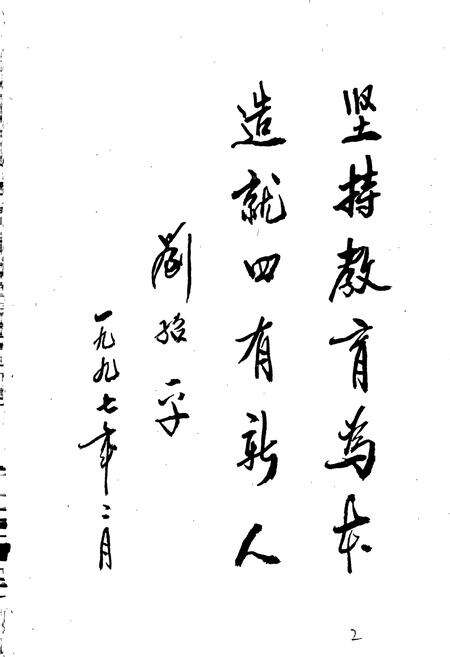 坚持教育为本
造就四有新人
劉
平
一九九七年二月
2